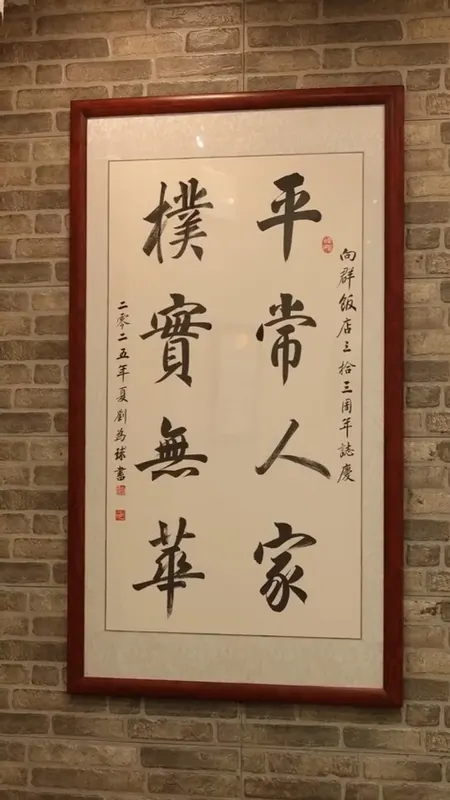 向群飯店三拾三周年誌慶
平常人家
樸實無華
二零二五年夏劉為球書